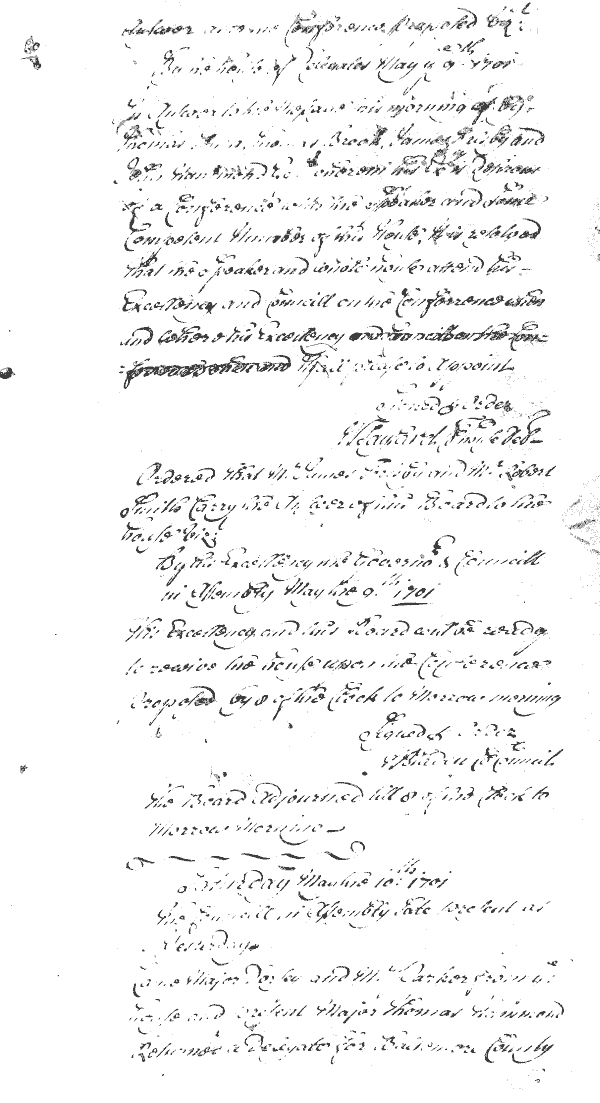 Answer Conference Proposed Viz.t
House of Delegates May y.e 9.th 1701
In Answer to the Message this morning by
Thomas Brook, James and
John
of a Conference with the Speaker and Some
Competent Number of this House, It is resolved
that the Speaker and whole house attend his
Excellency and Councill on the Conferrence when
and where his Excellency and Councill on the Con-
ferrence when and shall please to Appoint
Signed p Order
W Taylard
Ordered that M.r James and M.r Robert
Smith Carry the Answer of this Board to the
house Viz:
By his Excellency the Governo.r & Councill
in Assembly May the 9.th 1701
His Excellency and this Board will be ready
to receive the house upon the Conference
Proposed by 8 of the Clock to Morrow morning
Signed p Order
W Bladen Cl Council
The Board Adjourned till 8 of the Clock to
Morrow Morning
Saturday May the 10.th 1701
The Councill in Assembly Sate Present as
Yesterday.
Came Major and M.r from y.e
house and present Major Thomas Hammond
Returned a Delegate for Baltemore County